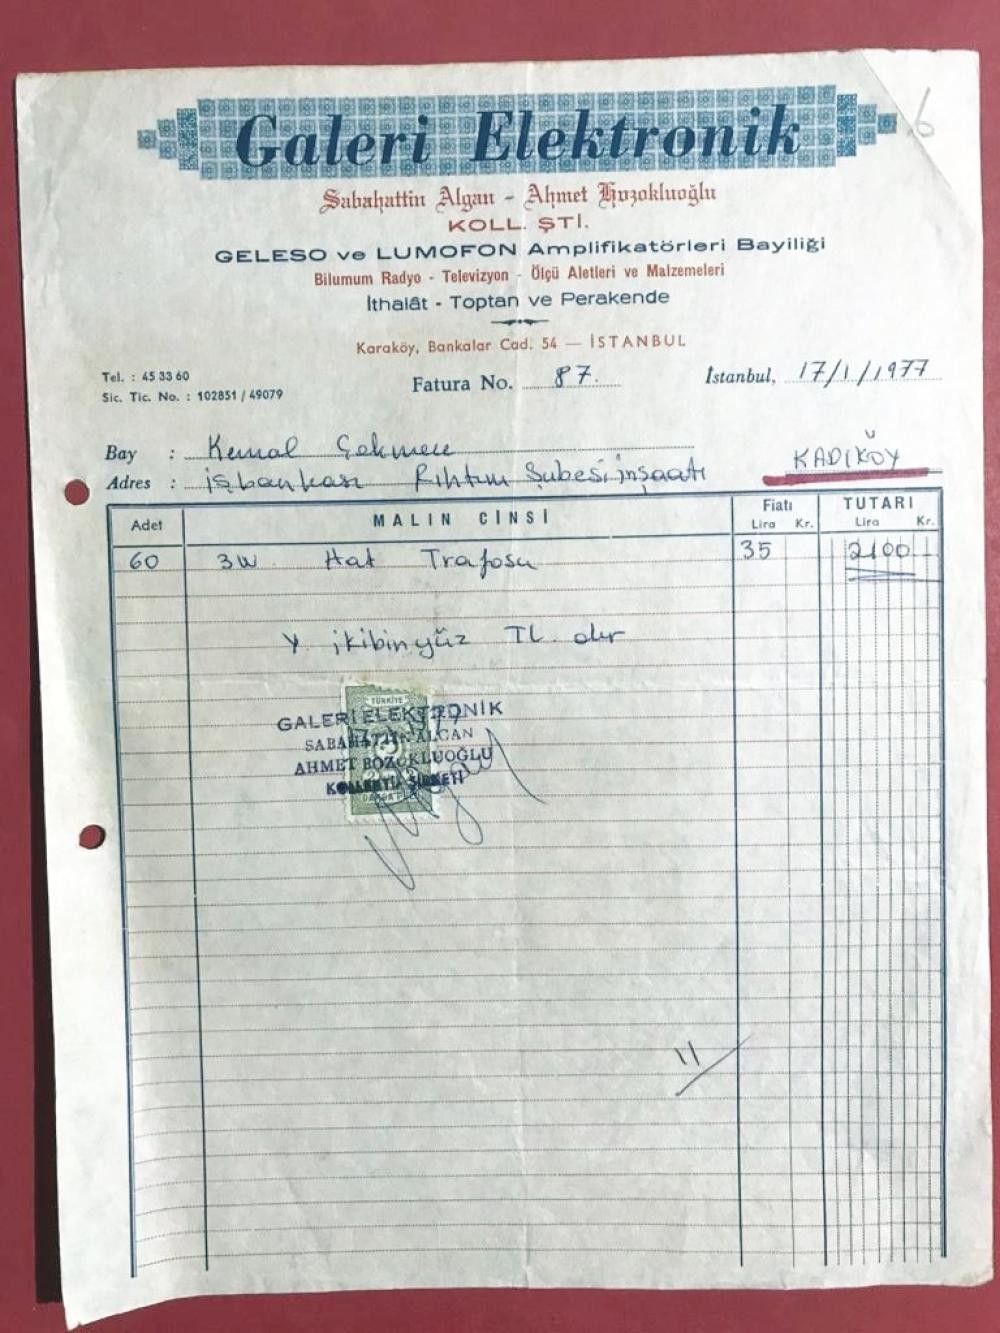 6
Galeri Elektronik
Sabahattin Algan - Ahmet Bozokluoğlu
KOLL. ŞTİ.
GELESO ve LUMOFON Amplifikatörleri Bayiliği
Bilumum Radyo - Televizyon - Ölçü Aletleri ve Malzemeleri
İthalât - Toptan ve Perakende
Karaköy, Bankalar Cad. 54 — İSTANBUL
Tel. : 45 33 60
Sic. Tic. No. : 102851 / 49079
Fatura No. 87.
İstanbul, 17/1/1977
Bay : Kemal Çekmece
Adres : işbankası Rıhtım Şubesi inşaatı
KADIKÖY
Adet MALIN CİNSİ Fiatı TUTARI
Lira Kr. Lira Kr.
60 3W Hat Trafosu 35 2100
Y. ikibinyüz TL. dır
TÜRKİYE
GALERİ ELEKTRONİK
SABAHATTİN ALGAN
AHMET BOZOKLUOĞLU
KOLLEKTİF ŞİRKETİ
11